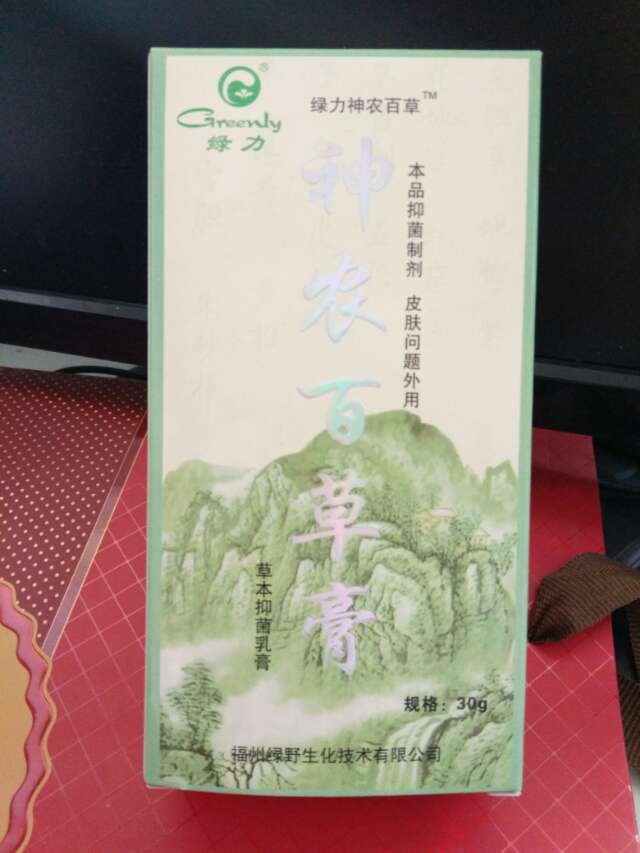 Greenly
绿力
®
绿力神农百草™
神农百草膏
本品抑菌制剂 皮肤问题外用
草本抑菌乳膏
规格：30g
福州绿野生化技术有限公司